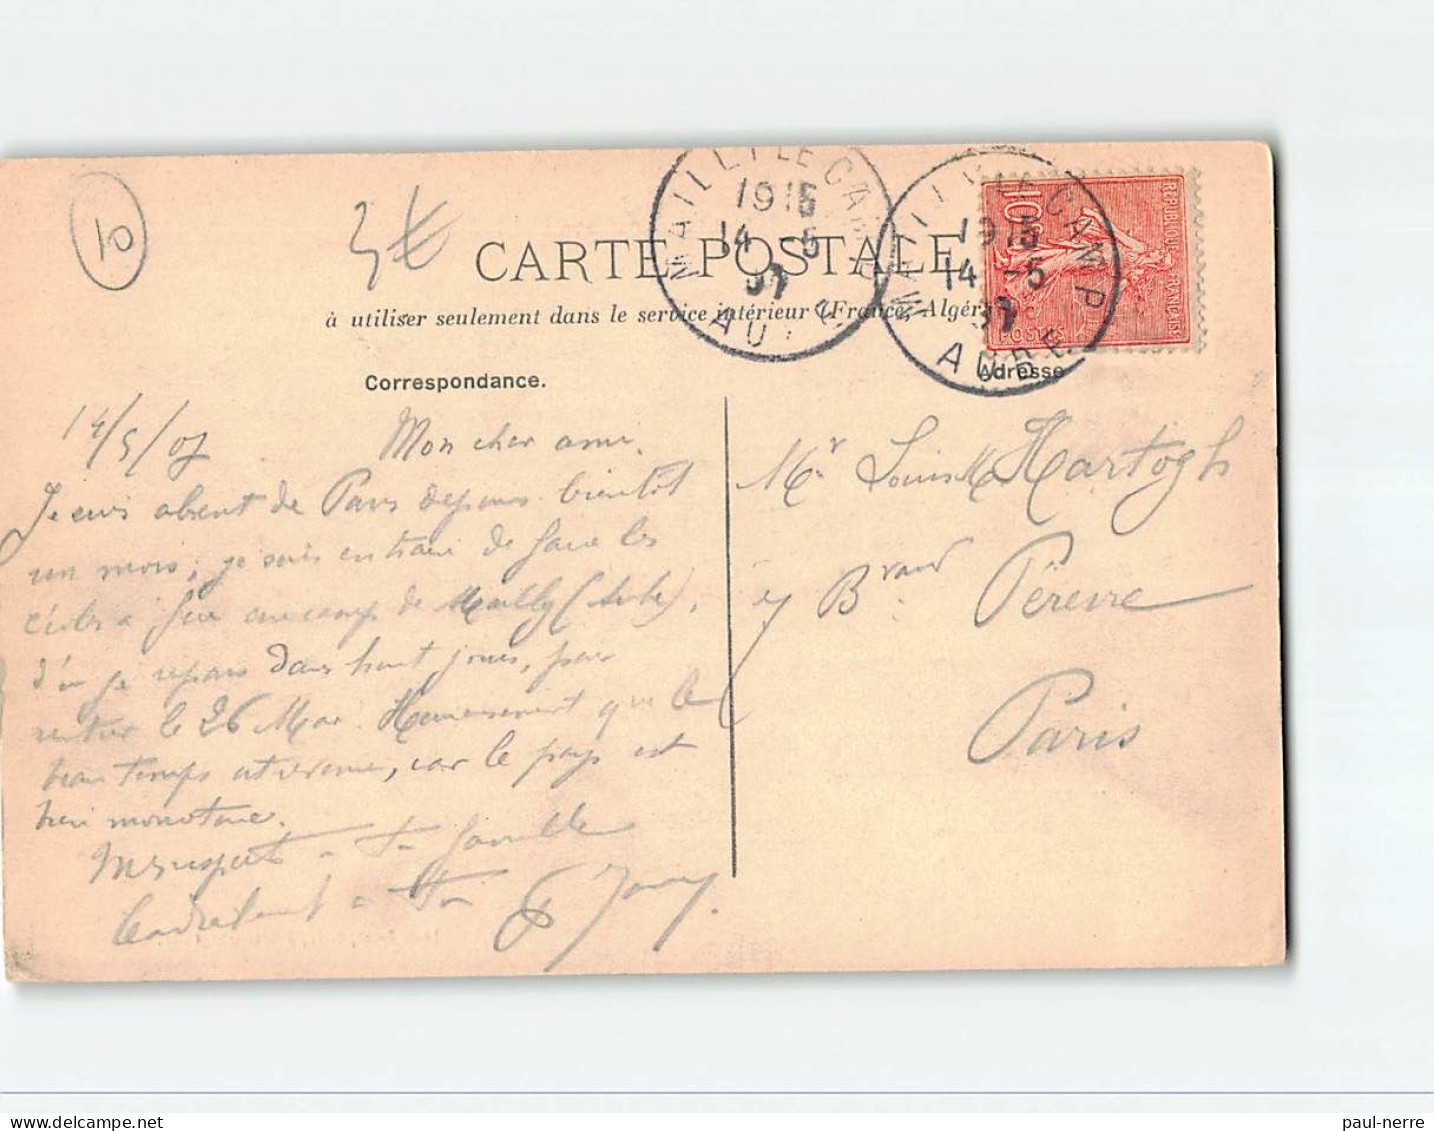 10
3€
CARTE POSTALE
à utiliser seulement dans le service intérieur (France, Algérie
MAILLY LE CAMP
1915
14 -5
07
AUBE
MAILLY LE CAMP
1915
14 -5
07
AUBE
10c
POSTES
REPUBLIQUE FRANÇAISE
Correspondance.
Adresse
14/5/07
Mon cher ami.
Je suis absent de Paris depuis bientôt
un mois, je suis en train de faire les
à feu au camp de Mailly (Aube),
d'où je repars dans huit jours, pour
rentrer le 26 Mai. Heureusement que le
beau temps car le pays est
bien monotone.
à ta famille
Cordialement à toi
Mr Louis Hartogh
Brand Péreire
Paris
paul-nerre